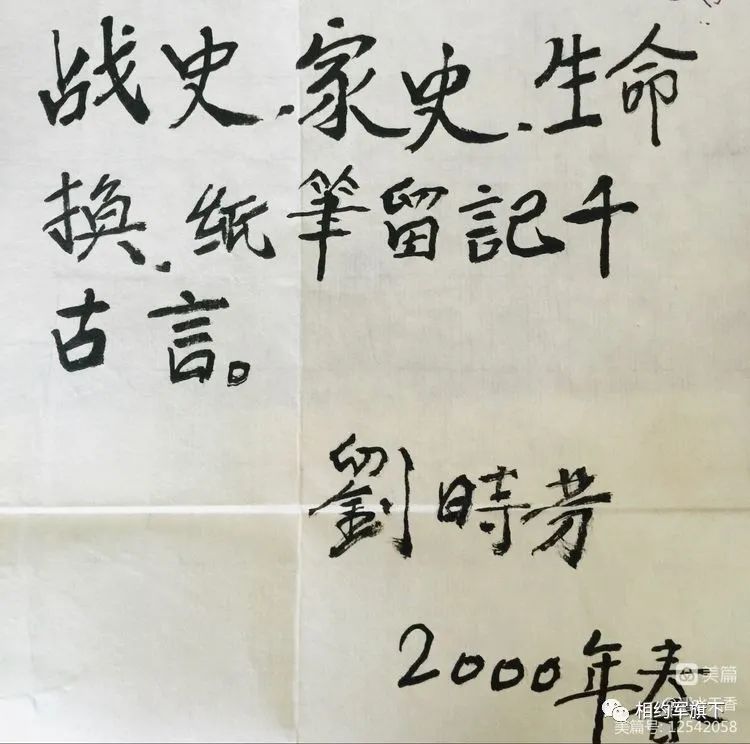 战史.家史.生命
换.纸筆留記千
古言。
劉時芳
2000年春
美篇
相约军旗下
美篇号:12542058